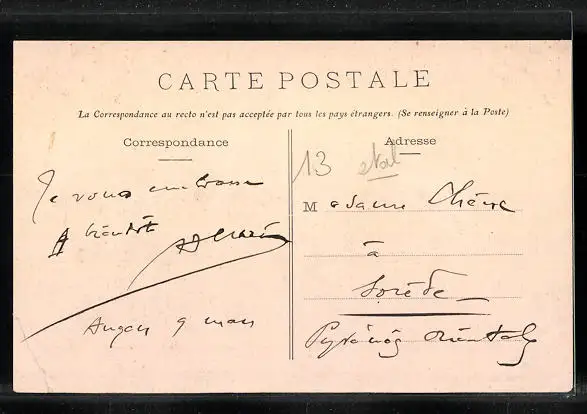 CARTE POSTALE
La Correspondance au recto n'est pas acceptée par tous les pays étrangers. (Se renseigner à la Poste)
Correspondance
Je vous embrasse
A bientôt
9 mars
Adresse
13
Madame
à
Sorède
Pyrénées Orientales